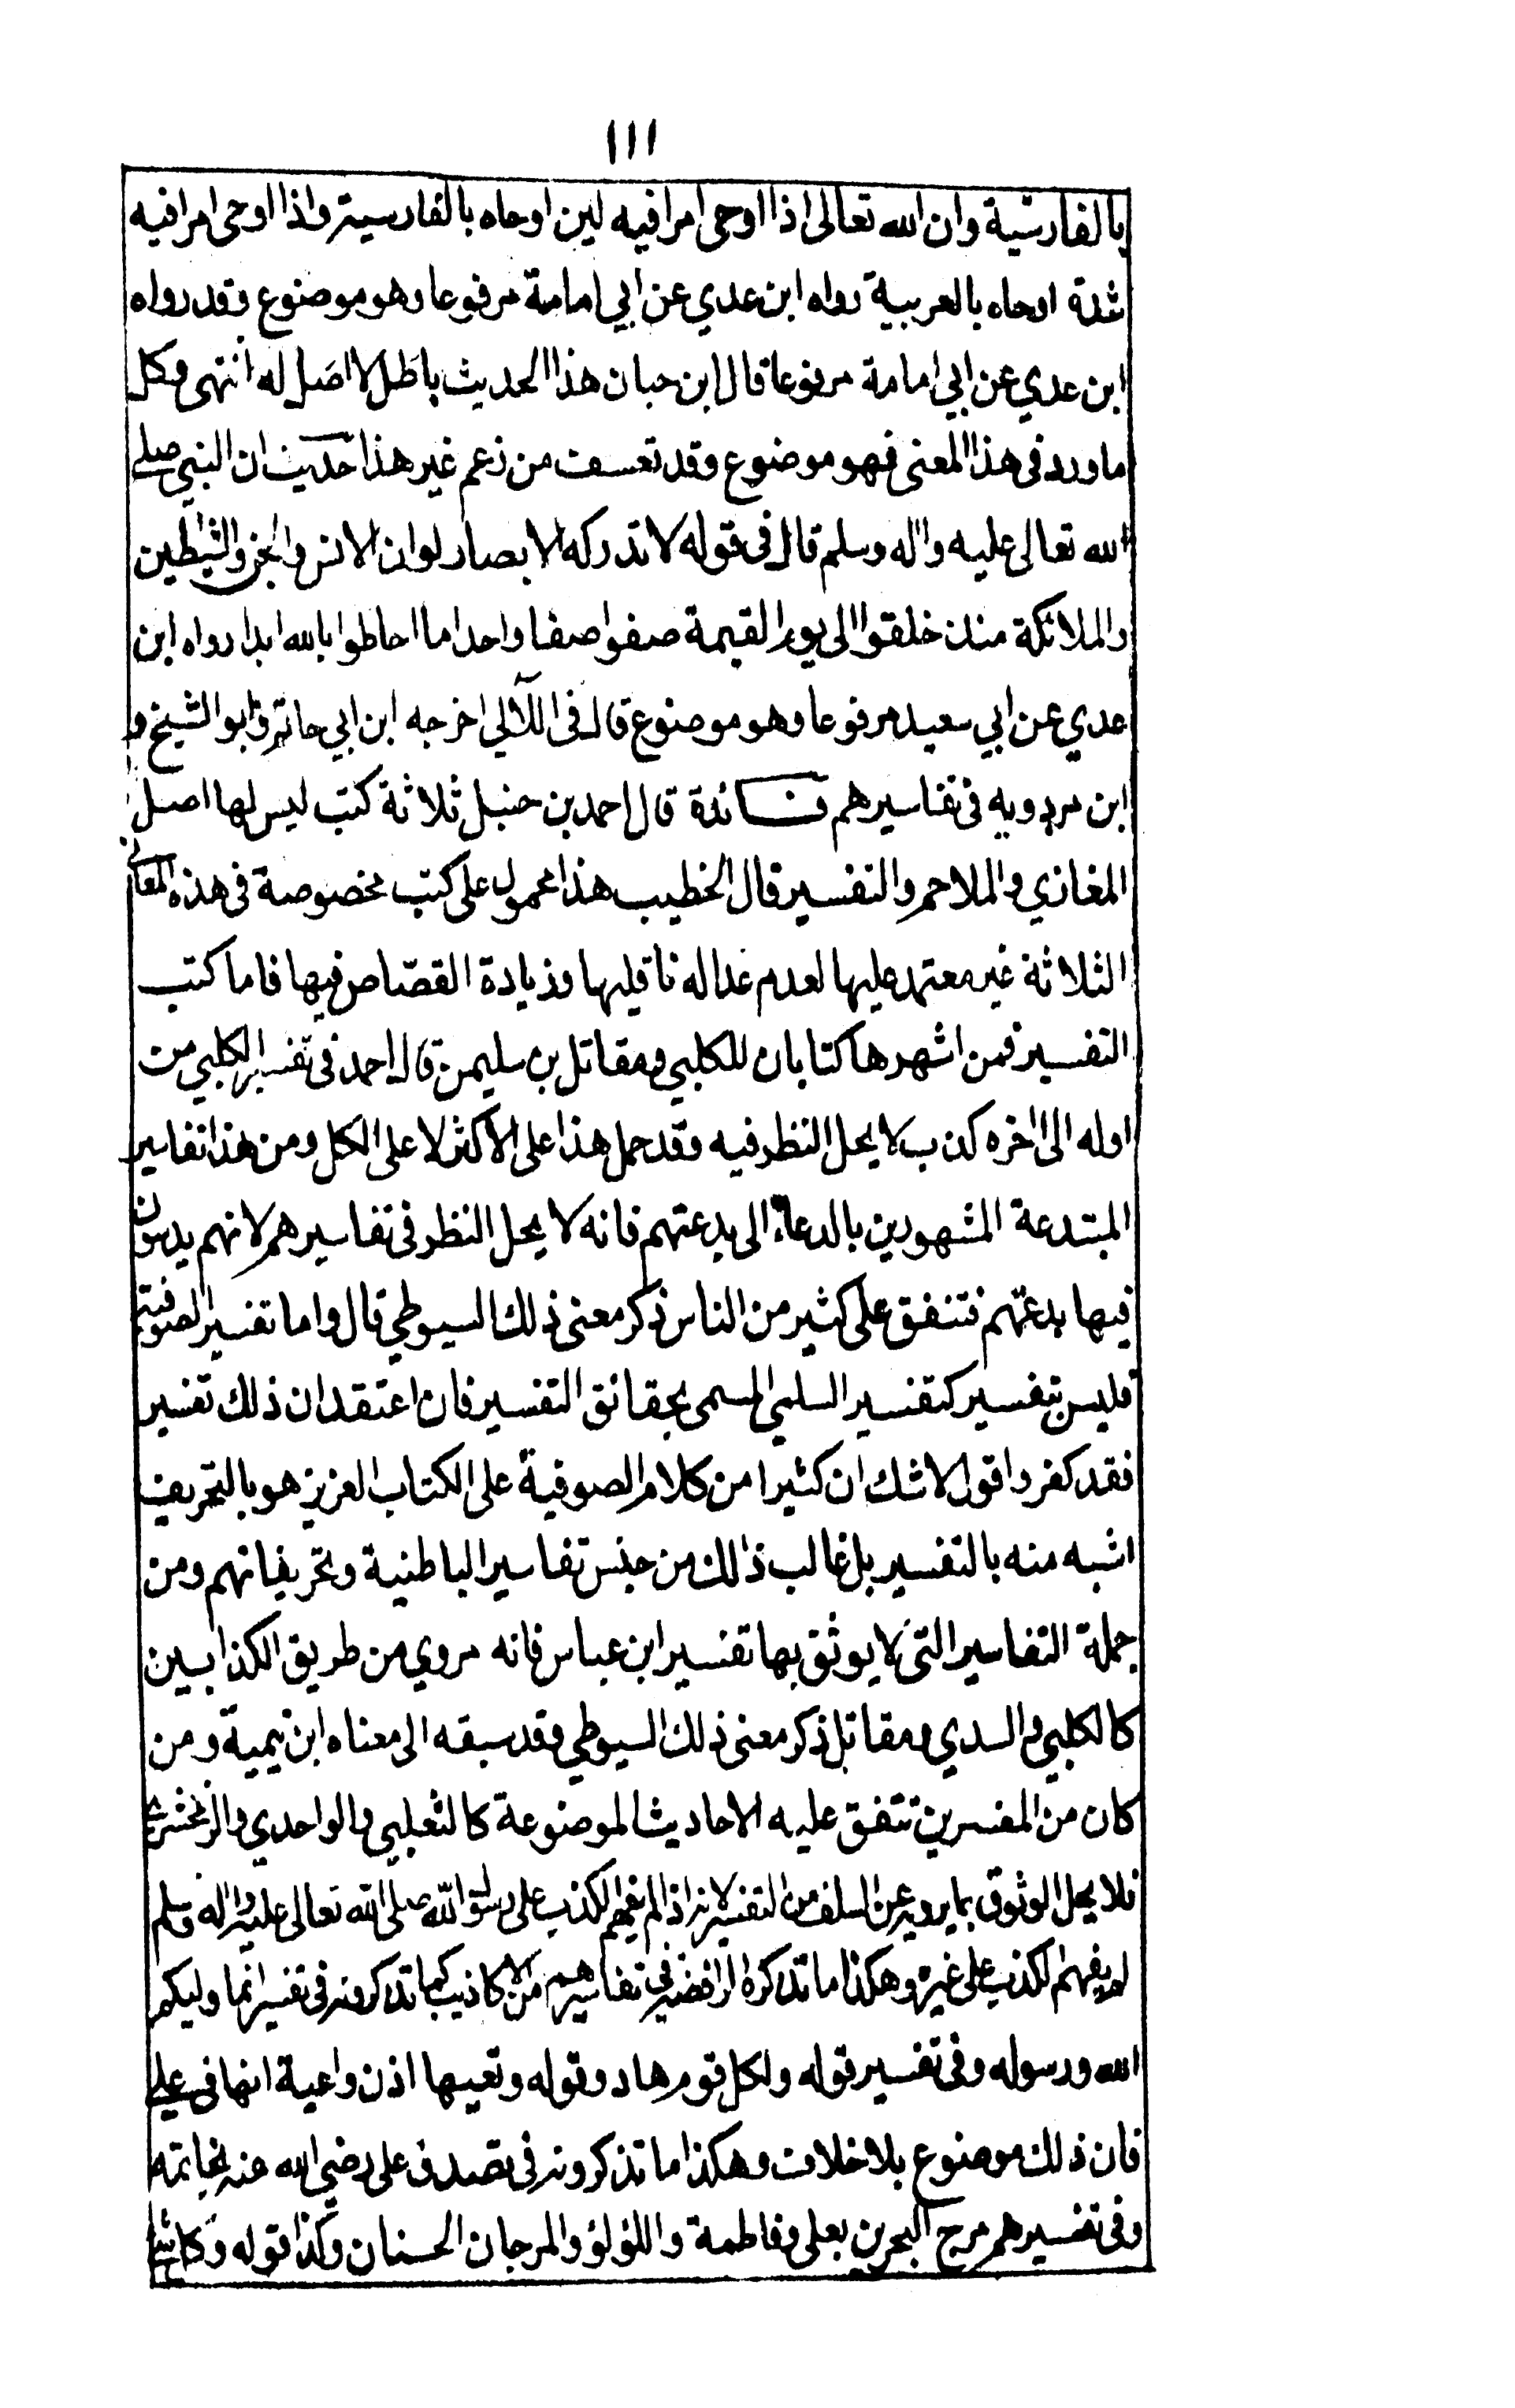 ١١١
بالفارسية وان الله تعالى اذا اوحى امرا فيه لين اوحاه بالفارسية واذا اوحى امرا فيه
شدة اوحاه بالعربية رواه ابن عدي عن ابي امامة مرفوعا وهو موضوع وقد رواه
ابن عدي عن ابي امامة مرفوعا قال ابن حبان هذا الحديث باطل لا اصل له انتهى وكل
ما ورد في هذا المعنى فهو موضوع وقد تعسف من زعم غير هذا حديث ان النبي صلى
الله تعالى عليه واله وسلم قال في قوله لا تدركه الابصار لو ان الانس والجن والشيطين
والملائكة منذ خلقوا الى يوم القيمة صفوا صفا واحدا ما احاطوا بالله ابدا رواه ابن
عدي عن ابي سعيد مرفوعا وهو موضوع قال في اللآلي اخرجه ابن ابي حاتم وابو الشيخ و
ابن مردويه في تفاسيرهم فائدة قال احمد بن حنبل ثلاثة كتب ليس لها اصل
المغازي والملاحم والتفسير قال الخطيب هذا محمول على كتب مخصوصة في هذه المعاني
الثلاثة غير معتمد عليها لعدم عداله ناقليها وزيادة القصاص فيها فاما كتب
التفسير فمن اشهرها كتابان للكلبي ومقاتل بن سليمن قال احمد في تفسير الكلبي من
اوله الى اخره كذب لا يحل النظر فيه وقد حمل هذا على الاكثر لا على الكل ومن هذا تفاسير
المبتدعة المشهورين بالدعاء الى بدعتهم فانه لا يحل النظر في تفاسيرهم لانهم يدسون
فيها بدعتهم فتنفق على كثير من الناس ذكر معنى ذلك السيوطي قال واما تفسير الصوفية
فليس بتفسير كتفسير السلمي المسمى بحقائق التفسير فان اعتقد ان ذلك تفسير
فقد كفر واقول لا شك ان كثيرا من كلام الصوفية على الكتاب العزيز هو بالتحريف
اشبه منه بالتفسير بل غالب ذلك من جنس تفاسير الباطنية وتحريفاتهم ومن
جملة التفاسير التى لا يوثق بها تفسير ابن عباس فانه مروي من طريق الكذابين
كالكلبي والسدي ومقاتل ذكر معنى ذلك السيوطي وقد سبقه الى معناه ابن تيمية ومن
كان من المفسرين تنفق عليه الاحاديث الموضوعة كالثعلبي والواحدي والزمخشري
فلا يحل الوثوق بما يرويه عن السلف من التفسير لانه اذا لم يفهم الكذب على رسول الله صلى الله تعالى عليه واله وسلم
لم يفهم الكذب على غيره وهكذا ما تذكره الرافضة في تفاسيرهم من الاكاذيب كما تذكرونه في تفسير انما وليكم
الله ورسوله وفي تفسير قوله ولكل قوم هاد وقوله وتعيها اذن واعية انها في علي
فان ذلك موضوع بلا خلاف وهكذا ما تذكرونه في تصدق على رضي الله عنه بخاتمه
وفي تفسيرهم مرج البحرين بعلي وفاطمة واللؤلؤ والمرجان الحسنان وكذا قوله وكل شئ